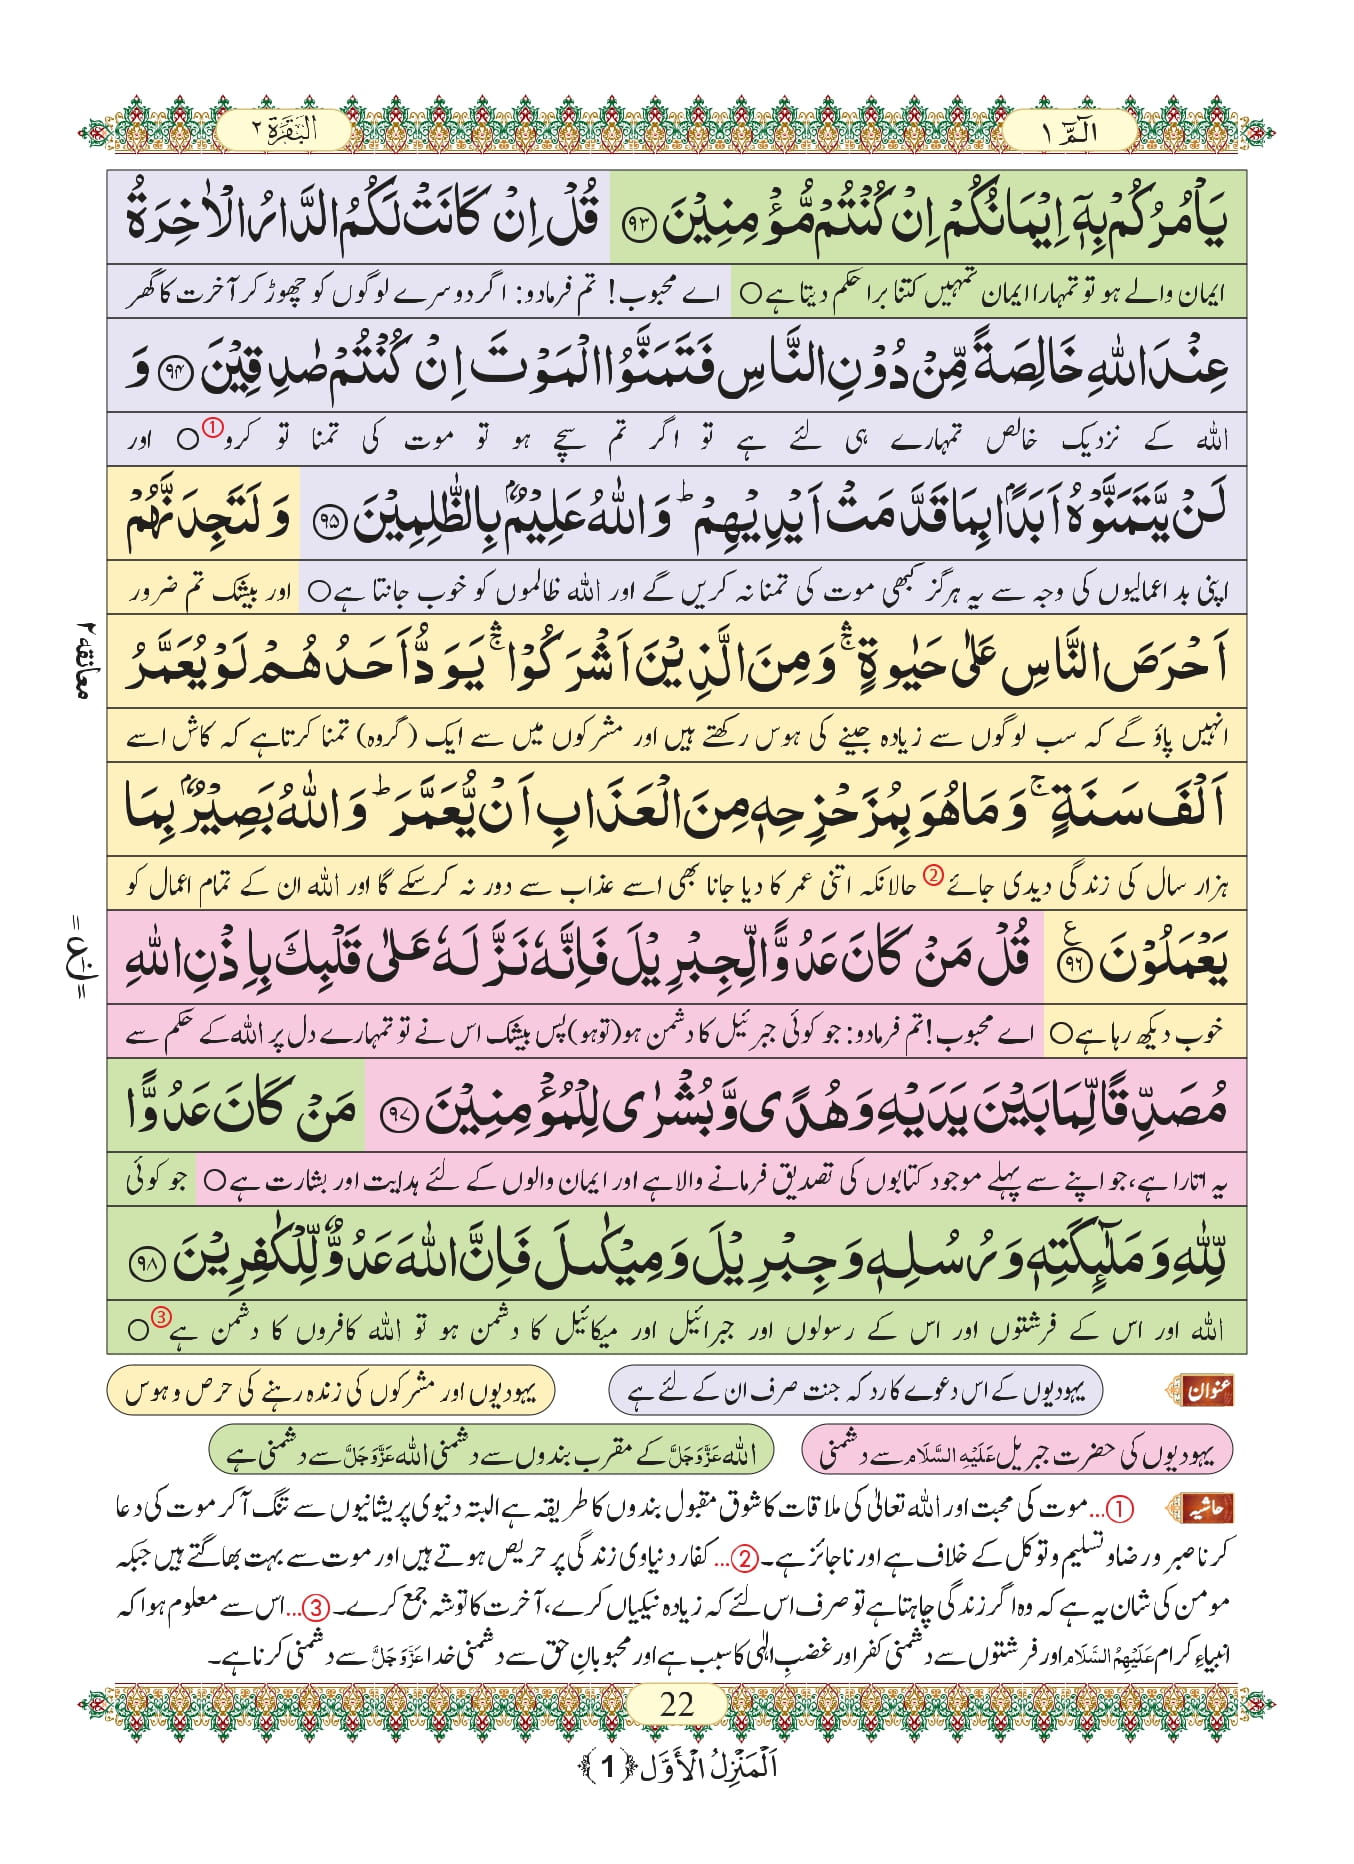 الٓمّٓ ۱
البقرة ۲
یَاْمُرُكُمْ بِهٖۤ اِیْمَانُكُمْ اِنْ كُنْتُمْ مُّؤْمِنِیْنَ ﴿۹۳﴾ قُلْ اِنْ كَانَتْ لَكُمُ الدَّارُ الْاٰخِرَةُ
ایمان والے ہو تو تمہارا ایمان تمہیں کتنا برا حکم دیتا ہے○ اے محبوب! تم فرمادو: اگر دوسرے لوگوں کو چھوڑ کر آخرت کا گھر
عِنْدَ اللّٰهِ خَالِصَةً مِّنْ دُوْنِ النَّاسِ فَتَمَنَّوُا الْمَوْتَ اِنْ كُنْتُمْ صٰدِقِیْنَ ﴿۹۴﴾ وَ
اللہ کے نزدیک خالص تمہارے ہی لئے ہے تو اگر تم سچے ہو تو موت کی تمنا تو کرو① ○ اور
لَنْ یَّتَمَنَّوْهُ اَبَدًۢا بِمَا قَدَّمَتْ اَیْدِیْهِمْ ؕ وَ اللّٰهُ عَلِیْمٌۢ بِالظّٰلِمِیْنَ ﴿۹۵﴾ وَ لَتَجِدَنَّهُمْ
اپنی بد اعمالیوں کی وجہ سے یہ ہرگز کبھی موت کی تمنا نہ کریں گے اور اللہ ظالموں کو خوب جانتا ہے○ اور بیشک تم ضرور
معانقه ۲
اَحْرَصَ النَّاسِ عَلٰى حَیٰوةٍ ۛۚ وَ مِنَ الَّذِیْنَ اَشْرَكُوْا ۛۚ یَوَدُّ اَحَدُهُمْ لَوْ یُعَمَّرُ
انہیں پاؤ گے کہ سب لوگوں سے زیادہ جینے کی ہوس رکھتے ہیں اور مشرکوں میں سے ایک (گروہ) تمنا کرتا ہے کہ کاش اسے
اَلْفَ سَنَةٍ ۚ وَ مَا هُوَ بِمُزَحْزِحِهٖ مِنَ الْعَذَابِ اَنْ یُّعَمَّرَ ؕ وَ اللّٰهُ بَصِیْرٌۢ بِمَا
ہزار سال کی زندگی دیدی جائے② حالانکہ اتنی عمر کا دیا جانا بھی اسے عذاب سے دور نہ کرسکے گا اور اللہ ان کے تمام اعمال کو
یَعْمَلُوْنَ ﴿۹۶﴾ قُلْ مَنْ كَانَ عَدُوًّا لِّجِبْرِیْلَ فَاِنَّهٗ نَزَّلَهٗ عَلٰى قَلْبِكَ بِاِذْنِ اللّٰهِ
خوب دیکھ رہا ہے○ اے محبوب! تم فرمادو: جو کوئی جبرئیل کا دشمن ہو (توہو) پس بیشک اس نے تو تمہارے دل پر اللہ کے حکم سے
مُصَدِّقًا لِّمَا بَیْنَ یَدَیْهِ وَ هُدًى وَّ بُشْرٰى لِلْمُؤْمِنِیْنَ ﴿۹۷﴾ مَنْ كَانَ عَدُوًّا
یہ اتارا ہے، جو اپنے سے پہلے موجود کتابوں کی تصدیق فرمانے والا ہے اور ایمان والوں کے لئے ہدایت اور بشارت ہے○ جو کوئی
لِّلّٰهِ وَ مَلٰٓىٕكَتِهٖ وَ رُسُلِهٖ وَ جِبْرِیْلَ وَ مِیْكٰىلَ فَاِنَّ اللّٰهَ عَدُوٌّ لِّلْكٰفِرِیْنَ ﴿۹۸﴾
اللہ اور اس کے فرشتوں اور اس کے رسولوں اور جبرائیل اور میکائیل کا دشمن ہو تو اللہ کافروں کا دشمن ہے③ ○
عنوان یہودیوں کے اس دعوے کا رد کہ جنت صرف ان کے لئے ہے یہودیوں اور مشرکوں کی زندہ رہنے کی حرص و ہوس
یہودیوں کی حضرت جبریل عَلَیْهِ السَّلَام سے دشمنی اللہ عَزَّوَجَلَّ کے مقرب بندوں سے دشمنی اللہ عَزَّوَجَلَّ سے دشمنی ہے
حاشیہ ①...موت کی محبت اور اللہ تعالیٰ کی ملاقات کا شوق مقبول بندوں کا طریقہ ہے البتہ دنیوی پریشانیوں سے تنگ آ کر موت کی دعا
کرنا صبر و رضا و تسلیم و توکل کے خلاف ہے اور ناجائز ہے۔ ②...کفار دنیاوی زندگی پر حریص ہوتے ہیں اور موت سے بہت بھاگتے ہیں جبکہ
مومن کی شان یہ ہے کہ وہ اگر زندگی چاہتا ہے تو صرف اس لئے کہ زیادہ نیکیاں کرے، آخرت کا توشہ جمع کرے۔ ③...اس سے معلوم ہوا کہ
انبیاءِ کرام عَلَیْهِمُ السَّلَام اور فرشتوں سے دشمنی کفر اور غضبِ الٰہی کا سبب ہے اور محبوبانِ حق سے دشمنی خدا عَزَّوَجَلَّ سے دشمنی کرنا ہے۔
22
اَلْمَنْزِلُ الْاَوَّل ﴿1﴾